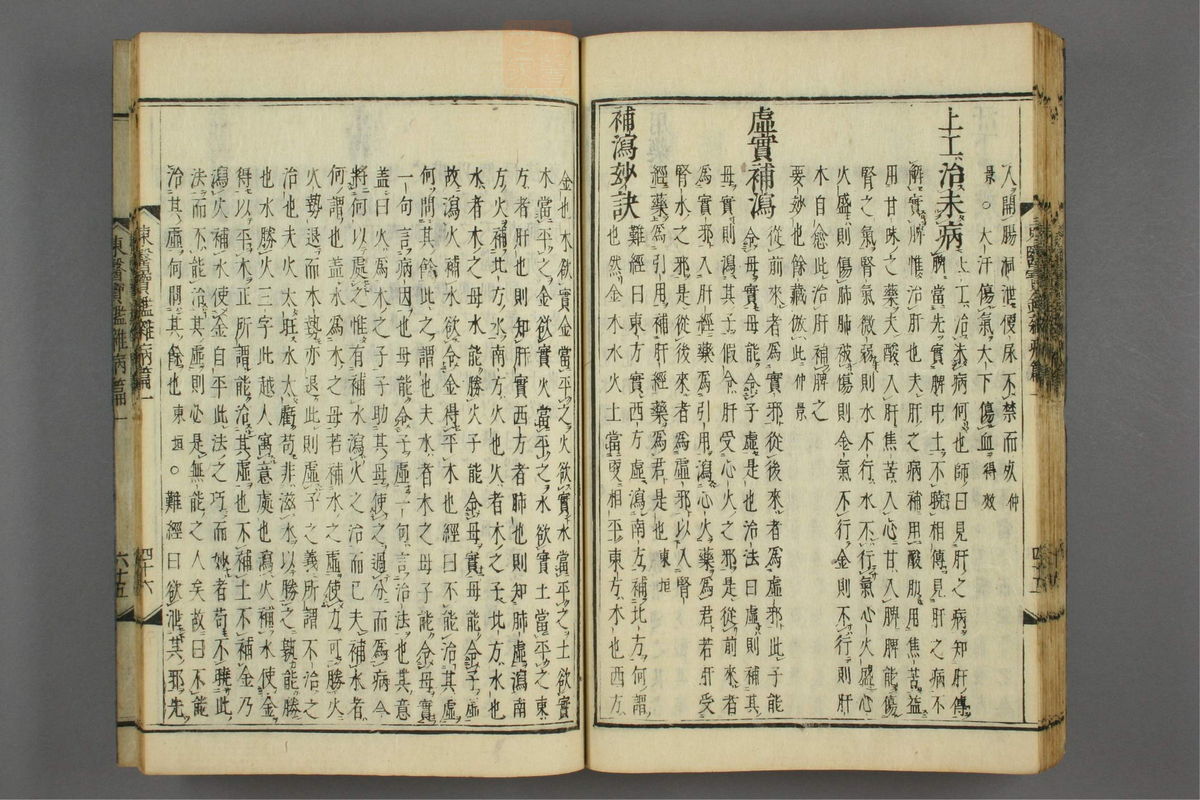 人開腸洞泄便尿不禁而死仲
景○大汗傷氣大下傷血得效
上工治未病上工治未病何也師曰見肝之病知肝傳
脾當先實脾中土不曉相傳見肝之病不
解實脾惟治肝也夫肝之病補用酸助用焦苦益
用甘味之藥夫酸入肝焦苦入心甘入脾脾能傷
腎之氣腎氣微弱則水不行水不行氣心火盛心
火盛則傷肺肺被傷則金氣不行金則不行則肝
木自愈此治肝補脾之
要妙也餘藏倣此仲景
虛實補瀉從前來者爲實邪從後來者爲虛邪此子能
令母實母能令子虛是也治法曰虛則補其
母實則瀉其子假令肝受心火之邪是從前來者
爲實邪入肝經藥爲引用瀉心火藥爲君若肝受
腎水之邪是從後來者爲虛邪以入腎
經藥爲引用補肝經藥爲君是也東垣
補瀉妙訣難經曰東方實西方虛瀉南方補北方何謂
也然金木水火土當更相平東方木也西方
金也木欲實金當平之火欲實水當平之土欲實
木當平之金欲實火當平之水欲實土當平之東
方者肝也則知肝實西方者肺也則知肺虛瀉南
方火補北方水南方火也火者木之子北方水也
水者木之母水能勝火子能令母實母能令子虛
故瀉火補水欲令金得平木也經曰不能治其虛
何問其餘此之謂也夫水者木之母子能令母實
一句言病因也母能令子虛一句言治法也其意
蓋曰火爲木之子子助其母使之過分而爲病今
將何以處之惟有瀉火補水之治而已夫補水者
何謂也蓋水爲木之母若補水之虛使力可勝火
火勢退而木勢亦退此則虛子之義所謂不治之
治也夫火太旺水太虧苟非滋水以勝之孰能勝
也水勝火三字此越人寓意處也瀉火補水使金
得以平木正所謂能治其虛也不補土不補金乃
瀉火補水使金自平此法之巧而妙者苟不曉此
法而不能治其虛則心是無能之人矣故曰不能
治其虛何問其餘也東垣○難經曰欲泄其邪先
東醫寶鑑雜病篇一
四十六
六十五